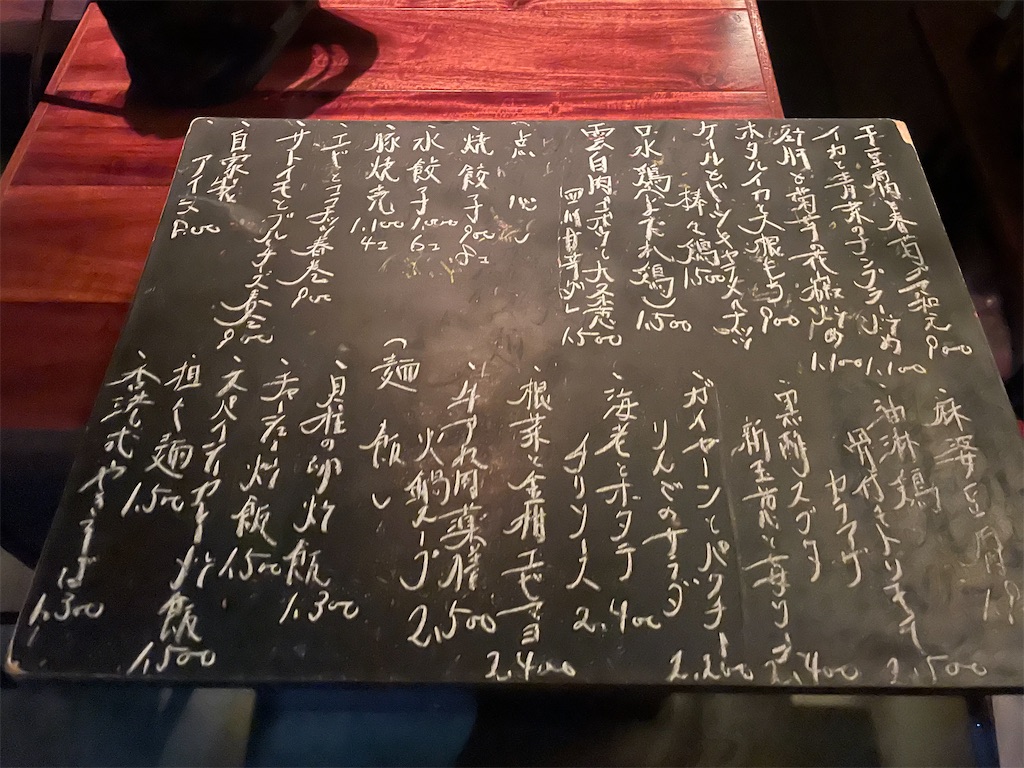 干豆腐と春菊の和え 900
イカと青菜のナンプラー炒め 1.100
砂肝と黄韮の花椒炒め 1.100
ホタルイカと大根もち 900
ケイルとドッ
棒々鶏 1500
口水鶏(よだれ鶏) 1.500
雲白肉
四川
1.500
点心
焼餃子 900 5コ
水餃子 1.000 6コ
豚焼売 1.100 4コ
エビとココナッツ春巻 900
サトイモとブルーチーズ春巻 900
自家製
アイス 800
麻婆豆腐
油淋鶏
骨付きトリモモ
カラアゲ 2,500
黒酢スブタ
新玉葱と
2,400
ガイヤーンとパクチー
りんごのサラダ 2.200
海老とホタテ
チリソース 2.400
根菜と金柑エビマヨ 2.400
薬膳
火鍋スープ 2,500
麺 飯
貝柱の卵炒飯 1.300
チャーシュー炒飯 1.500
スパイシーカレー炒飯 1,500
担々麺 1.500
香港式やきそば 1.300